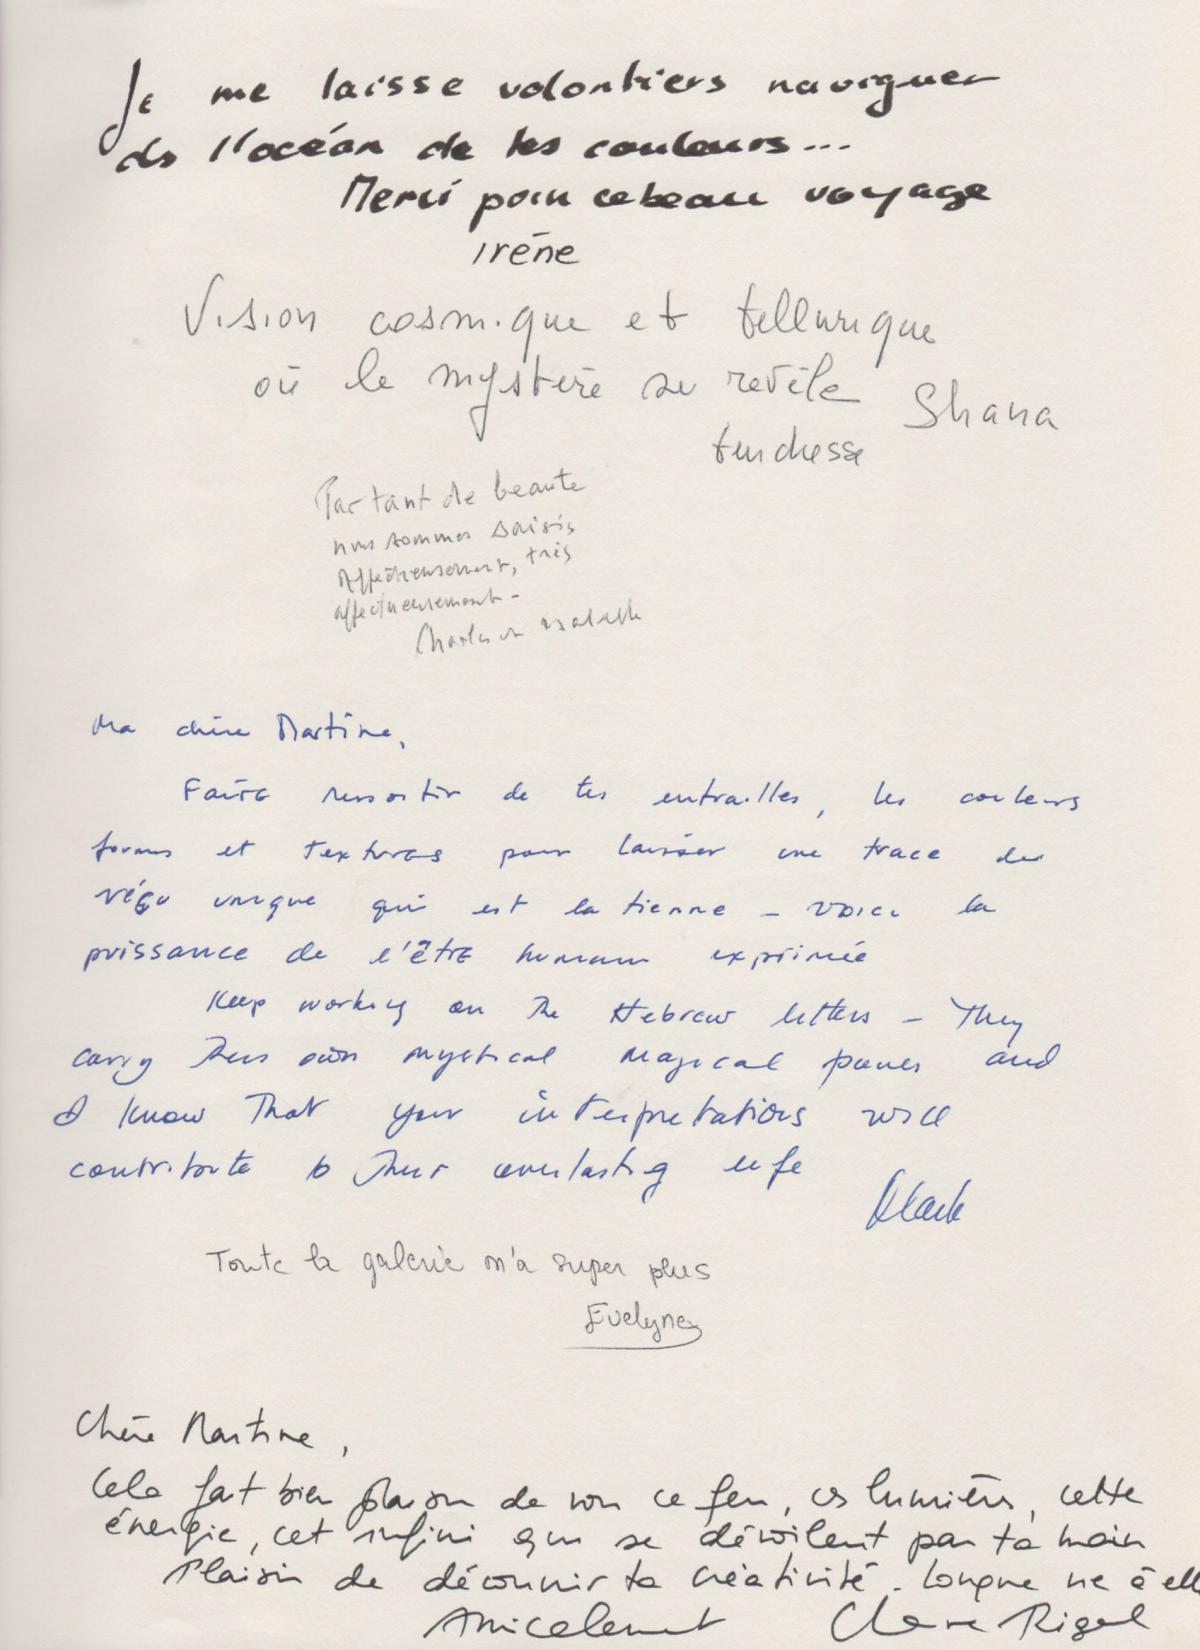 Je me laisse volontiers naviguer
ds l'océan de tes couleurs...
Merci pour ce beau voyage
Irène
Vision cosmique et tellurique
où le mystère se révèle
Shana
tendresse
Par tant de beauté
nous sommes saisis
Affectueusement, très
affectueusement -
Charles
Ma chère Martine,
Faire ressortir de tes entrailles, les couleurs
formes et textures pour laisser une trace du
vécu unique qui est la tienne - voici la
puissance de l'être humain exprimée
Keep working on the Hebrew letters - They
carry their own mystical magical power and
I know that your interpretations will
contribute to their everlasting life
Toute la galerie m'a super plus
Evelyne
Chère Martine,
Cela fait bien plaisir de voir ce feu, ces lumières, cette
énergie, cet infini qui se dévoilent par ta main
Plaisir de découvrir ta créativité. Longue vie à elle
Amicalement Claire Rigal